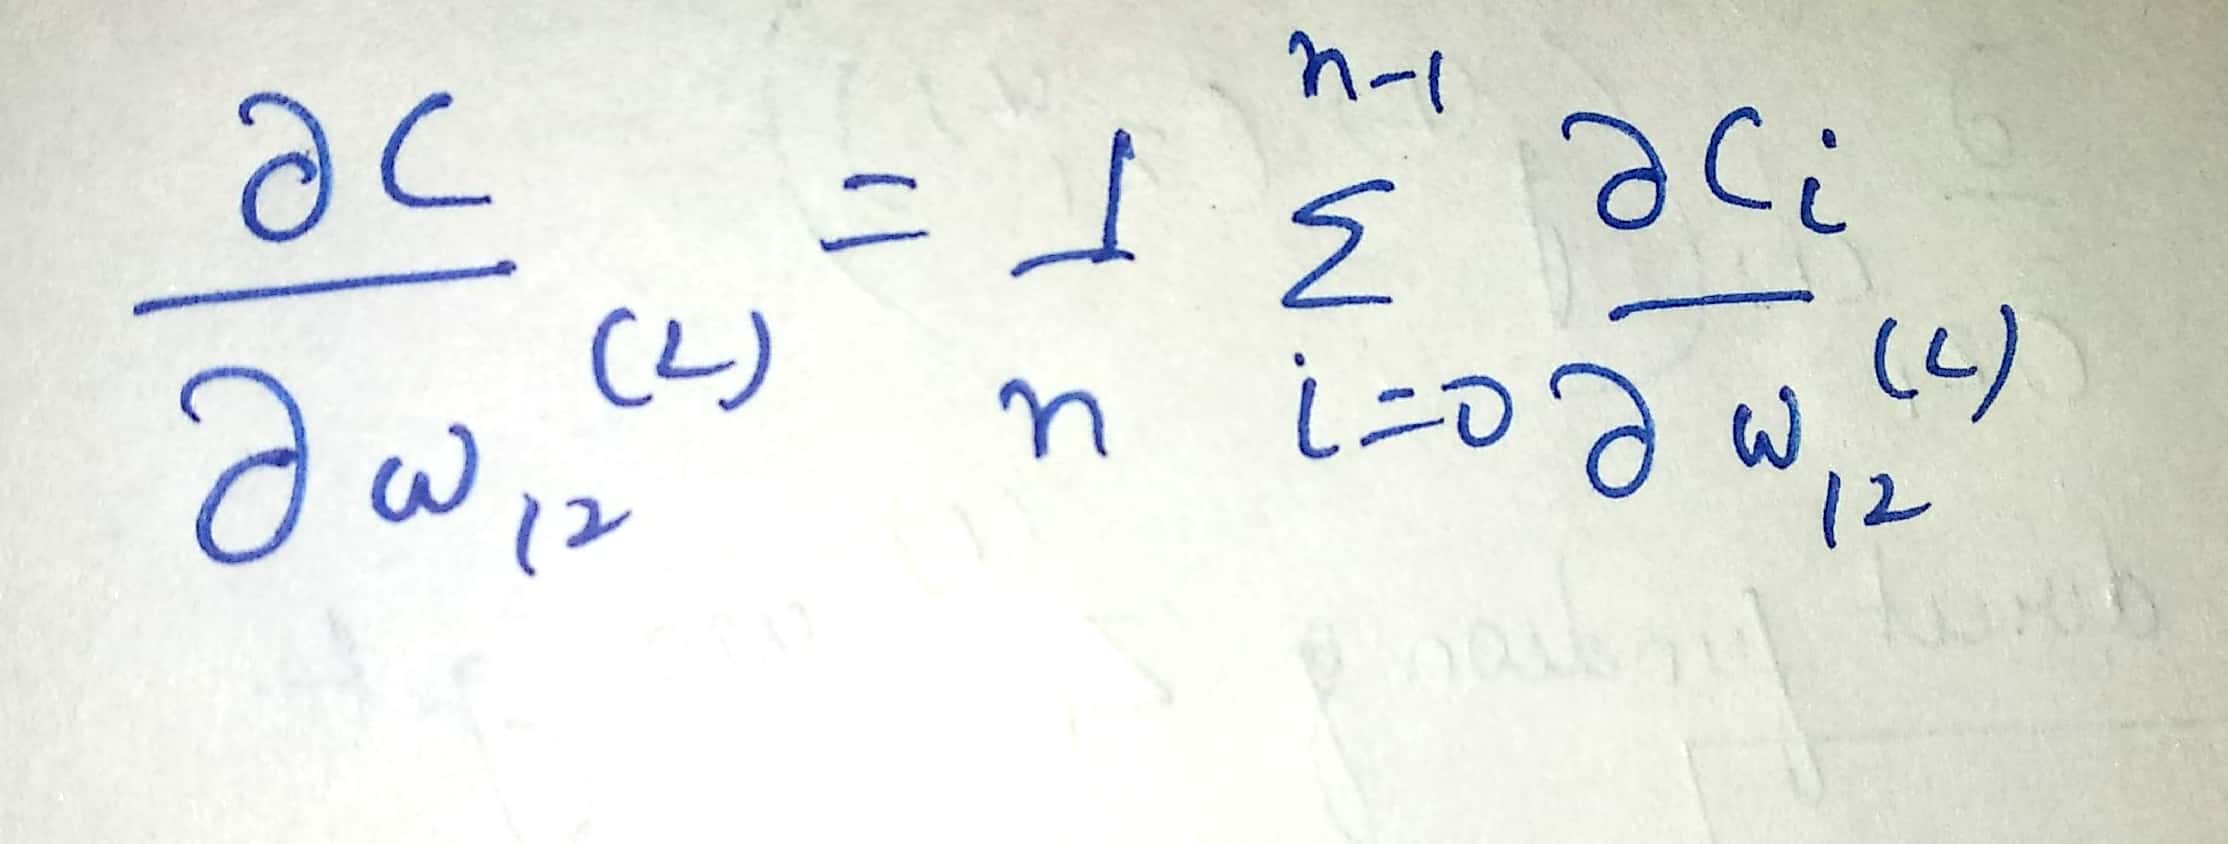 ∂C/∂w₁₂⁽ᴸ⁾ = 1/n Σᵢ₌₀ⁿ⁻¹ ∂Cᵢ/∂w₁₂⁽ᴸ⁾